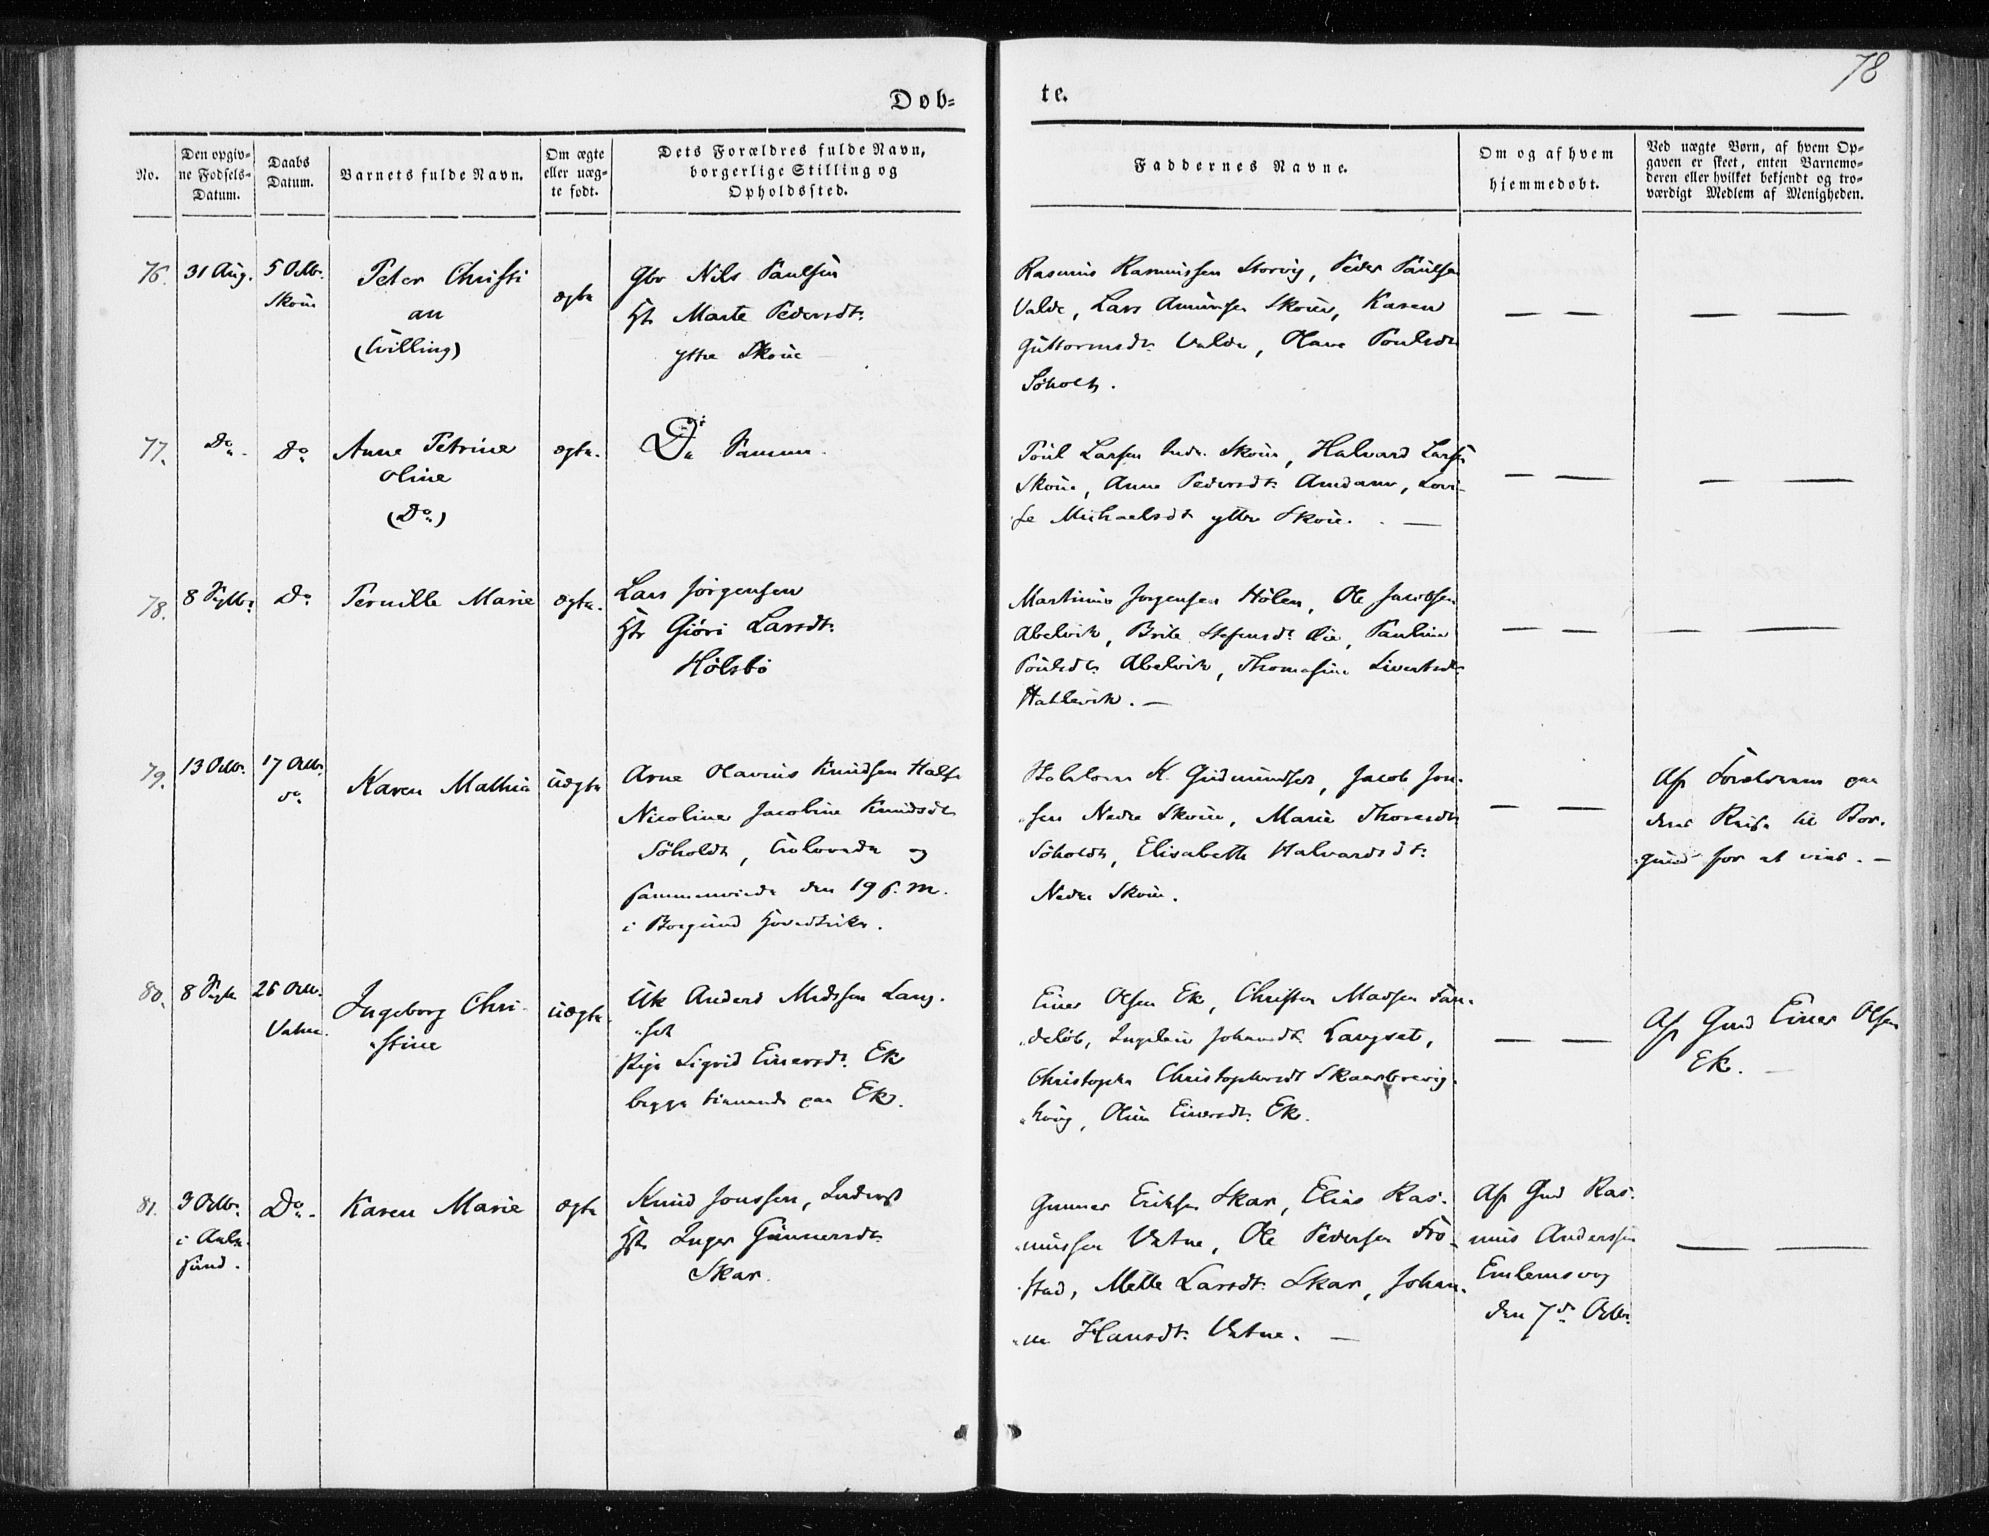 78
Døb=
te.
No.
Den opgiv=
ne Fødsels=
Datum.
Daabs
Datum.
Barnets fulde Navn.
Om ægte
eller uæg=
te født.
Dets Forældres fulde Navn,
borgerlige Stilling og
Opholdssted.
Faddernes Navne.
Om og af hvem
hjemmedøbt.
Ved uægte Børn, af hvem Op=
gaven er skeet, enten Barnemo=
deren eller hvilket bekjendt og tro=
værdigt Medlem af Menigheden.
76.
31 Aug.
5 Octbr.
Skoue
Peter Christi
an
(Tvilling)
ægte
Gbr Nils Paulsen
H. Marte Pedersdt.
ytre Skoue
Rasmus Rasmussen Storvig, Peder Paulsen
Valde, Lars Amundsen Skoue, Karen
Guttormsdt. Valde, Olave Poulsdt
Søholt.
77.
Do
Do
Anne Petrine
Oline
(Do)
ægte.
De Samme.
Poul Larsen Skoue, Halvard Larsen
Skoue, Anne Pedersdt. Amdam, Lovi-
se Michaelsdt ytre Skoue.
78.
8 Septbr.
Do
Pernille Marie
ægte.
Lars Jørgensen
H. Giøri Larsdt.
Hølsbø
Martinus Jørgensen Hølen, Ole Jacobsen
Abelvik, Brite Stefensdt. Øie, Pauline
Poulsdt. Abelvik, Thomasine Sivertsdt.
Hatlevik.
79.
13 Octbr.
17 Octbr.
do
Karen Mathea
Uægte
Arne Olavius Knudsen
Nicoline Jacobine Knudsdt
Søholdt, trolovede og
sammenviede den 19 s. M.
i Borgund Hovedkirke.
K. Gudmundset, Jacob Jon-
sen Nedre Skoue, Marie Thoresdt
Søholdt, Elisabeth Halvardsdt.
Nedre Skoue.
Af Forældrene paa
deres Reise til Bor-
gund for at vies.
80.
8 Septb
26 Octbr.
Vatne.
Ingeborg Chri-
stine
uægte
Uk Anders Madssen Lang-
set
Pige Sigrid Einersdt. Ek
begge tienende paa Ek.
Einer Olsen Ek, Christen Madsen
Johansdt. Langset,
Christophersdt
Oline Einersdt. Ek.
Af Gmd Einer Olsen
Ek.
81.
3 Octbr.
i Aale-
sund.
Do
Karen Marie
ægte
Knud Jonssen, Inderst
H. Inger Gunnersdt.
Skar.
Gunner Eriksen Skar, Elias Ras-
mussen Vatne, Ole Pedersen Frø-
stad, Mette Larsdt. Skar, Johan-
ne Hansdt. Vatne.
Af Gmd Ras-
mus Anderssen
Emlemsvog
den 7de Octbr.